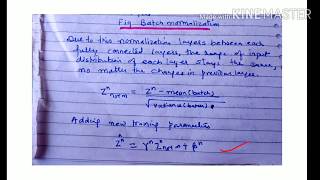 KINEMASTER
Fig. Batch normalization
Due to this normalization layers between each
fully connected layers, the range of input
distribution of each layer stays the same,
no matter the changes in previous layer.
Zⁿnorm = Zⁿ - mean(batch)
√variance(batch)
Adding new training parameters
Ẑⁿ = γⁿ Zⁿnorm + βⁿ